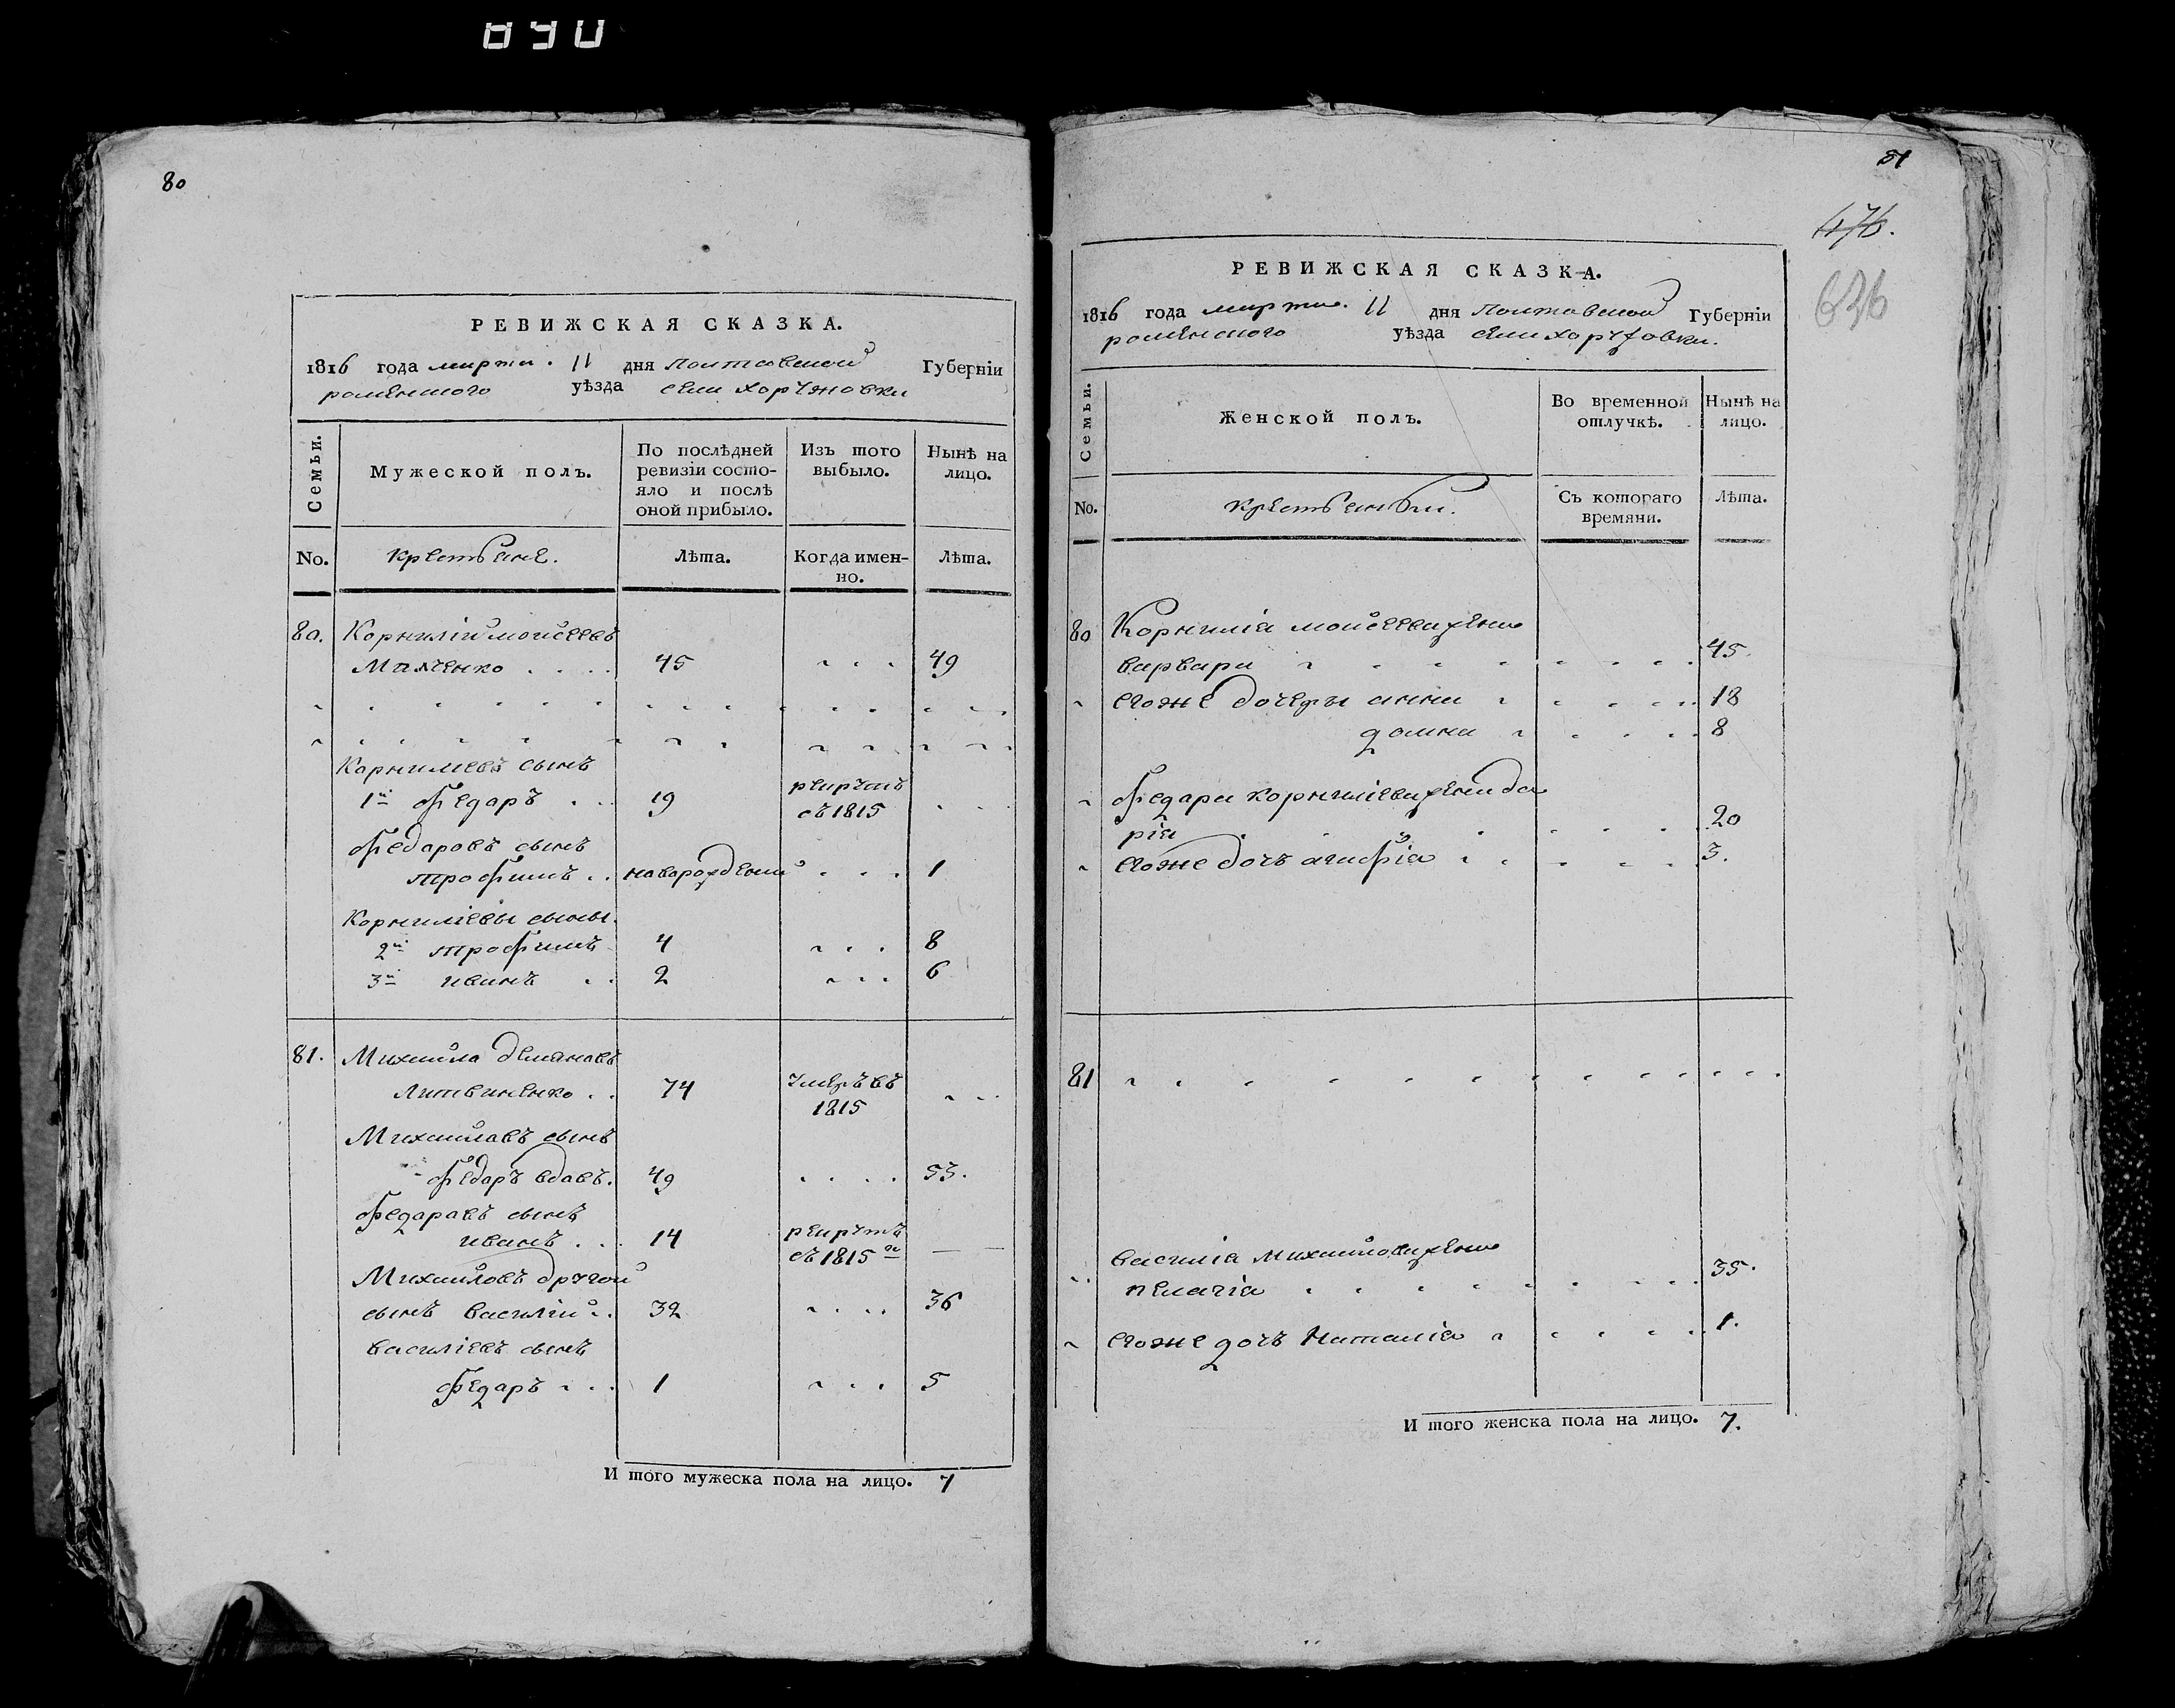 890
80
РЕВИЖСКАЯ СКАЗКА.
1816 года марта 11 дня Полтавской Губерніи
роменского уѣзда села
Семьи.
Мужеской полъ.
По послѣдней ревизіи состояло и послѣ оной прибыло.
Изъ того выбыло.
Нынѣ на лицо.
No.
крестьяне.
Лѣта.
Когда именно.
Лѣта.
80. Корнилій моисеевъ
45 49
Корнилиевъ сынъ
1й Федаръ 19 рекрутъ съ 1815
Федаровъ сынъ
трофимъ новорожденый 1
Корниліевы сыны
2й трофимъ 4 8
3й иванъ 2 6
81. Михайла демяновъ
Литвиненко 74 умеръ въ 1815
Михайловъ сынъ
Федаръ вдовъ. 49 53.
Федаравъ сынъ
иванъ 14 рекрутъ съ 1815го
Михайловъ другой
сынъ василій 32 36
василіевъ сынъ
Федаръ 1 5
И того мужеска пола на лицо. 7
81
476.
636
РЕВИЖСКАЯ СКАЗКА.
1816 года марта. 11 дня Полтавской Губерніи
роменского уѣзда села
Семьи.
Женской полъ.
Во временной отлучкѣ.
Нынѣ на лицо.
No.
крестьянки.
Съ котораго времяни.
Лѣта.
80 Корнилія моисеева жена
варвара 45.
егоже дочеры анна 18
домна 8
Федара корниліева жена да
рія 20
егоже дочь агафія 3.
81
василія михайлова жена
пелагія 35.
егоже дочь наталія 1.
И того женска пола на лицо. 7.